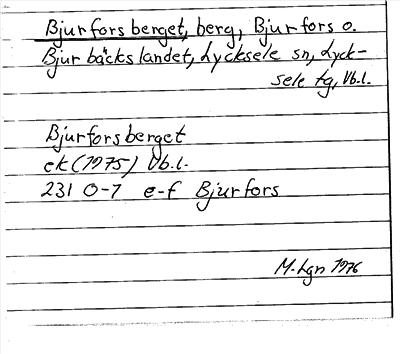 Bjurforsberget, berg, Bjurfors o.
Bjurbäckslandet, Lycksele sn, Lyck-
sele tg, Vb.l.
Bjurforsberget
ek (1975) Vb.l.
231 0-7 e-f Bjurfors
M-Lgn 1976